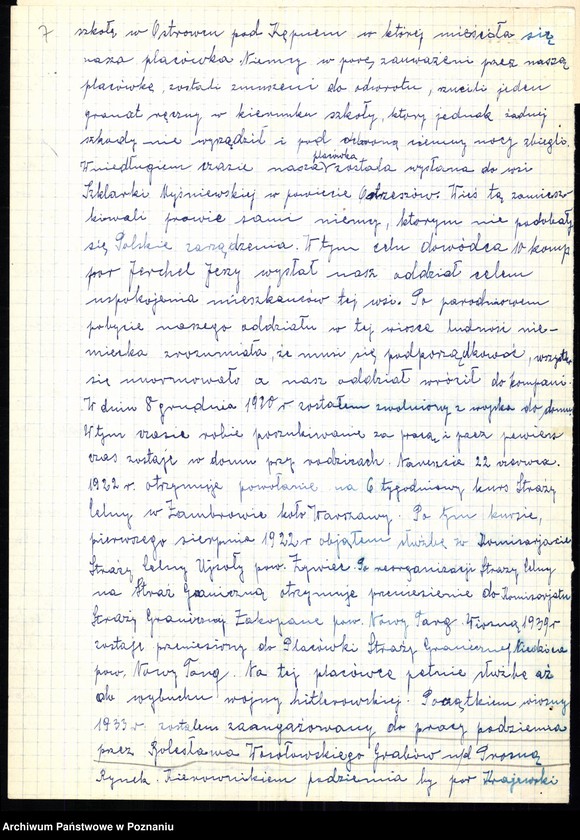 7 szkołę w Ostrowcu pod Kępnem w której mieściła się
nasza placówka. Niemcy w porę zauważeni przez naszą
placówkę, zostali zmuszeni do odwrotu, rzucili jeden
granat ręczny w kierunku szkoły, który jednak żadnej
szkody nie wyrządził i pod ochroną ciemnej nocy zbiegli.
W niedługiem czasie nasza placówka została wysłana do wsi
Szklarki Myśniewskiej w powiecie Ostrzeszów. Wieś tą zamiesz-
kiwali prawie sami niemcy, którym nie podobały
się Polskie zarządzenia. W tym celu dowódca 10 komp
por Jerchel Jerzy wysłał nasz oddział celem
uspokojenia mieszkańców tej wsi. Po parodniowem
pobycie naszego oddziału w tej wiosce ludność nie-
miecka zrozumiała, że musi się podporządkować, wszystko
się unormowało a nasz oddział wrócił do kompani
W dniu 8 grudnia 1920 r zostałem zwolniony z wojska do domu
W tym czasie robię poszukiwanie za pracą i przez pewien
czas zostaję w domu przy rodzicach. Nareszcie 22 czerwca.
1922 r. otrzymuję powołanie na 6 tygodniowy kurs Straży
Celny w Zambrowie koło Warszawy. Po tym kursie,
pierwszego sierpnia 1922 r objąłem służbę w Komisarjacie
Straży Celny Ujsoły pow. Żywiec Po reorganizacji Straży Celny
na Straż Graniczną otrzymuję przeniesienie do Komisarjatu
Straży Graniczny Zakopane pow. Nowy Targ. Wiosną 1939 r
zostaję przeniesiony do Placówki Straży Granicznej Niedzica
pow. Nowy Targ. Na tej placówce pełnię służbę aż
do wybuchu wojny hitlerowskiej. Początkiem wiosny
1933 r. zostałem zaangażowany do pracy podziemia
przez Bolesława Wesołowskiego Grabów n/d Prosną
Rynek. Kierownikiem podziemia by por Krajewski
Archiwum Państwowe w Poznaniu